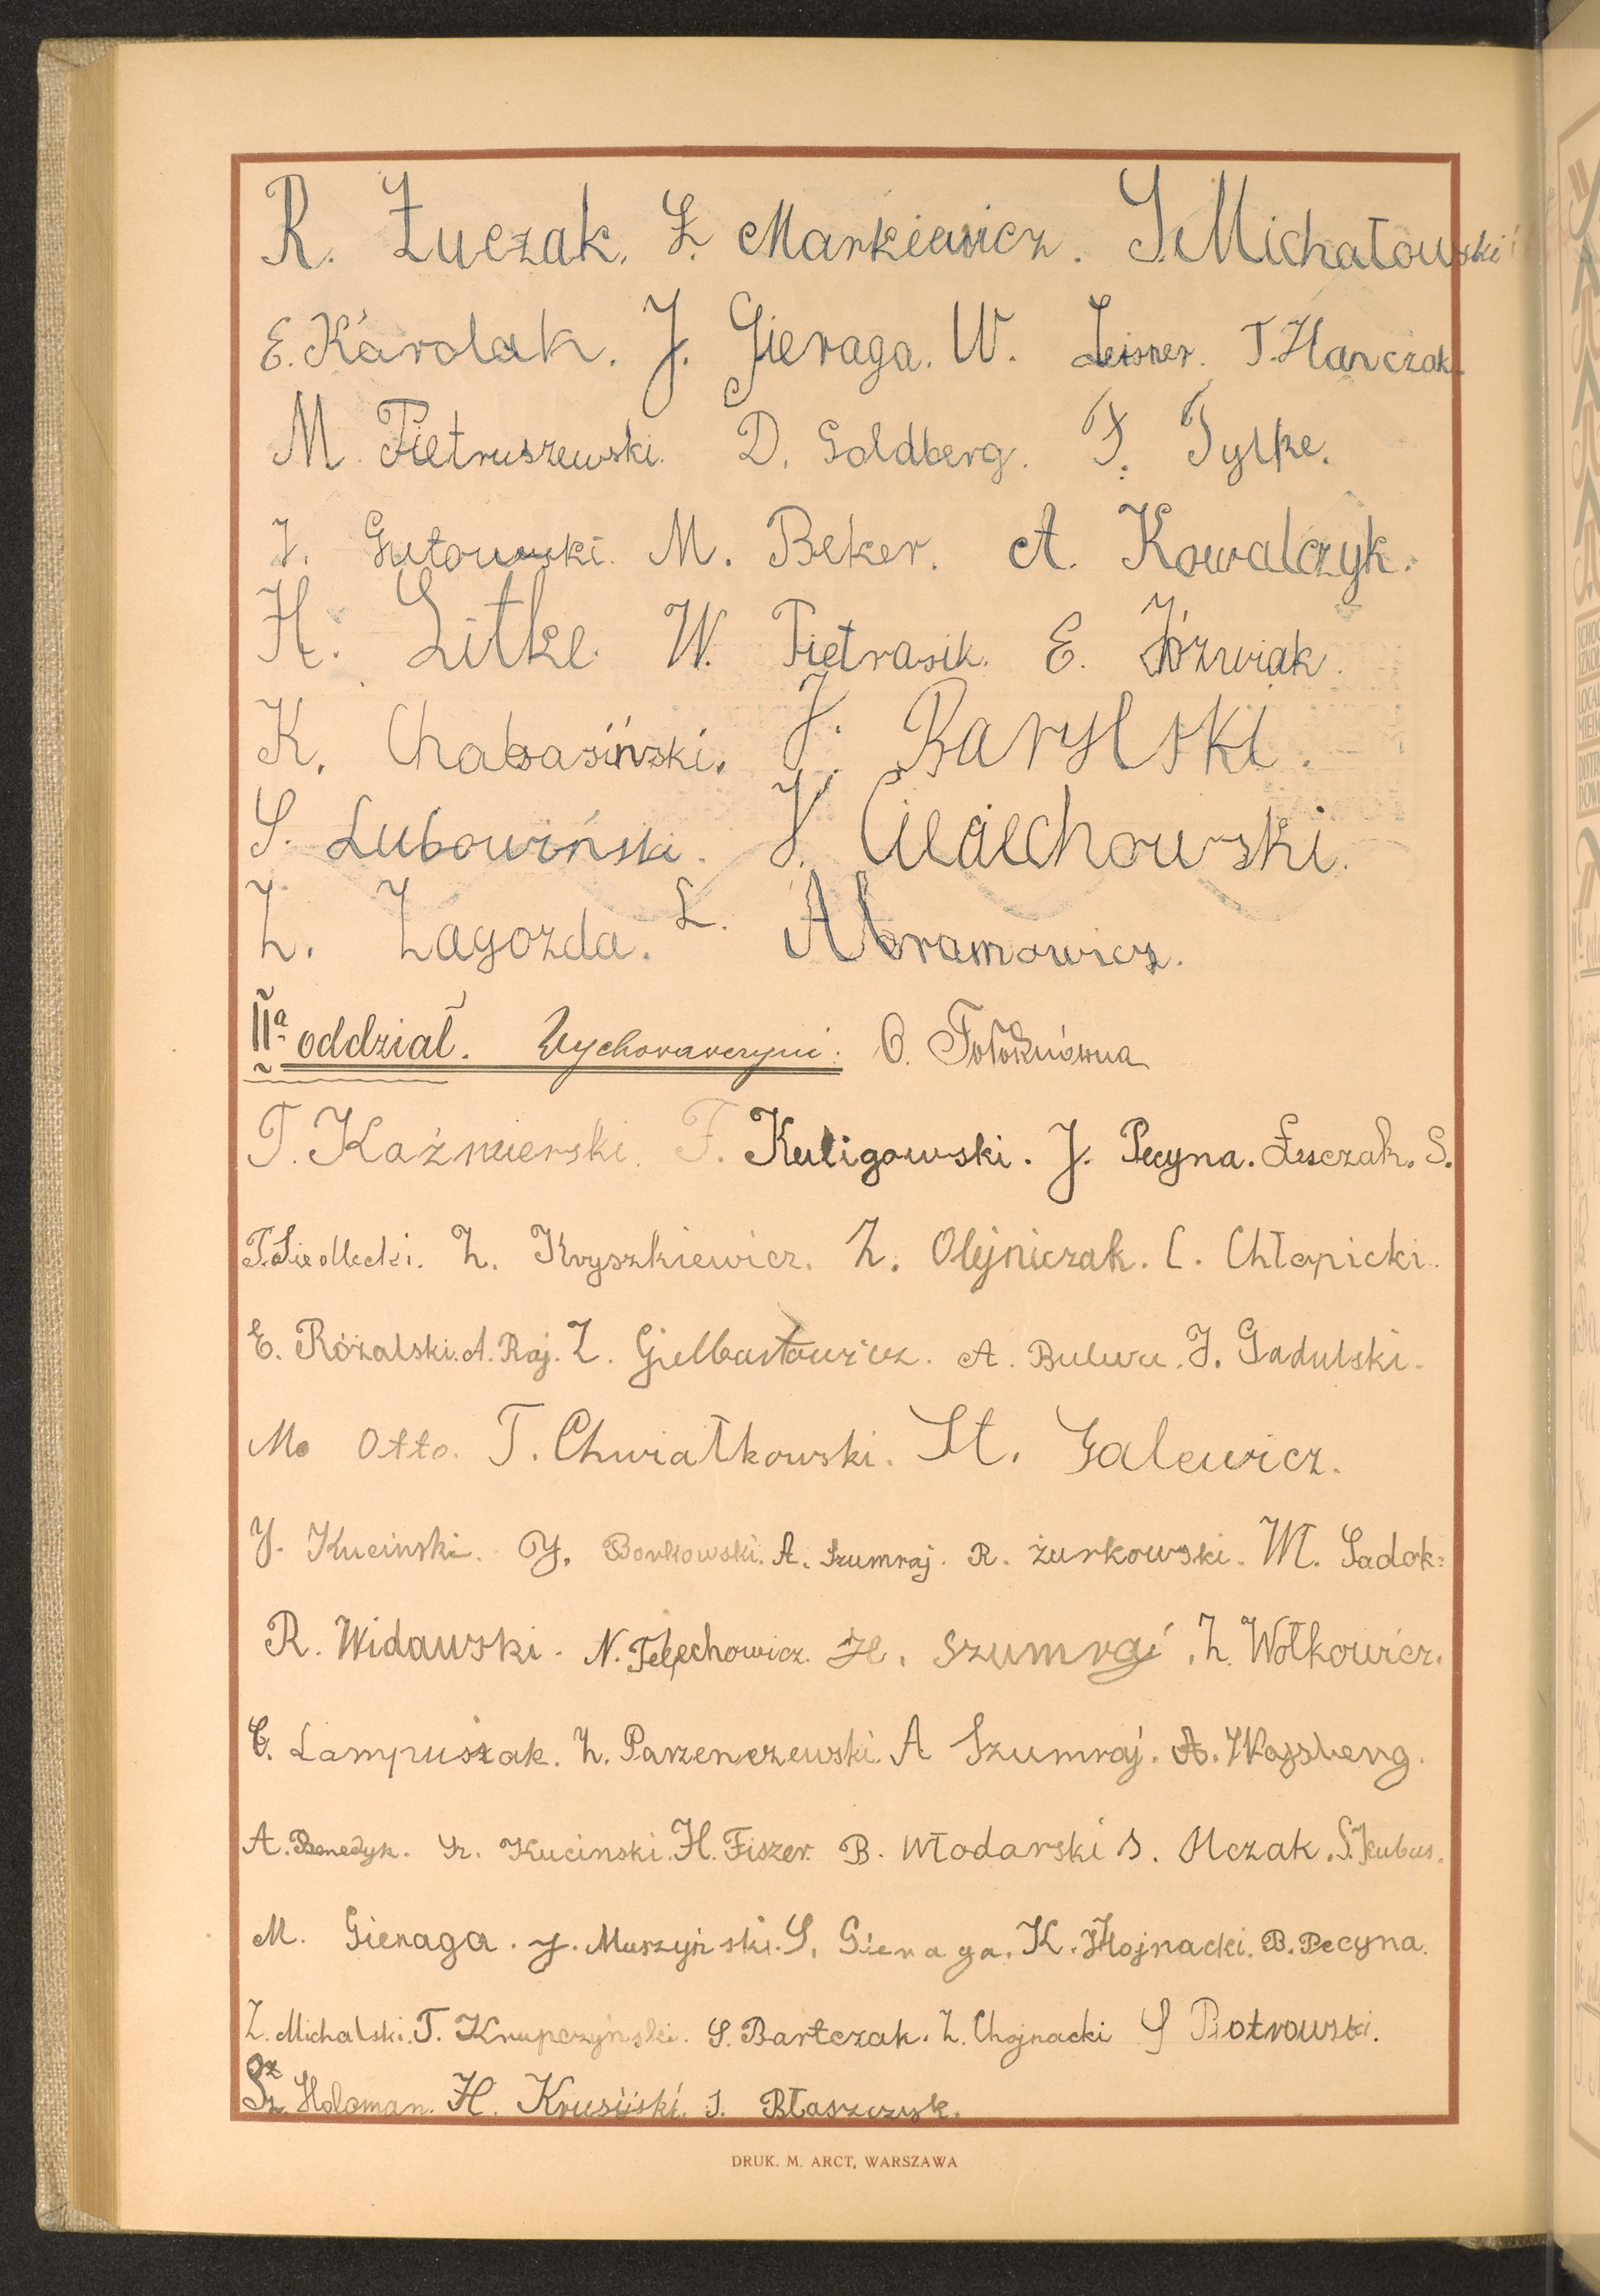 R. Łuczak. Ł. Markiewicz. S. Michałowski
E. Karolak. J. Gieraga. W. Leisner. T. Hanczak.
M. Pietruszewski. D. Goldberg. F. Tylke.
J. Gutowski. M. Beker. A. Kowalczyk.
H. Litke. W. Pietrasik. E. Jóźwiak.
K. Chabasiński. J. Barylski.
S. Lubowiński. J. Ciećiechowski.
Z. Zagozda. L. Abramowicz.
IIa oddział. Wychowawczyni: O. Fołoknówna
T. Kaźmierski. F. Kuligowski. J. Pecyna. Łuczak. S.
T. Siedlecki. Z. Kryszkiewicz. Z. Olejniczak. C. Chłapicki.
E. Różalski. A. Raj. Z. Gielbartowicz. A. Bulwa. J. Gadulski.
M. Otto. T. Chwiałkowski. St. Galewicz.
J. Kucinski. J. Borkowski. A. Szumraj. R. żurkowski. M. Sadok.
R. Widawski. N. Telechowicz. H. Szumraj. Z. Wołkowicz.
C. Lampusiak. Z. Parzenczewski. A Szumraj. A. Wajsberg.
A. Benedyk. Kucinski. H. Fiszer. B. Włodarski S. Olczak. S. Kubus.
M. Gieraga. J. Muszyński. S. Gieraga. K. Hojnacki. B. Pecyna.
Z. Michalski. T. Krupczyński. S. Bartczak. Z. Chojnacki S Piotrowski.
Sz. Holcman. H. Krusiński. J. Błaszczyk.
DRUK. M. ARCT, WARSZAWA